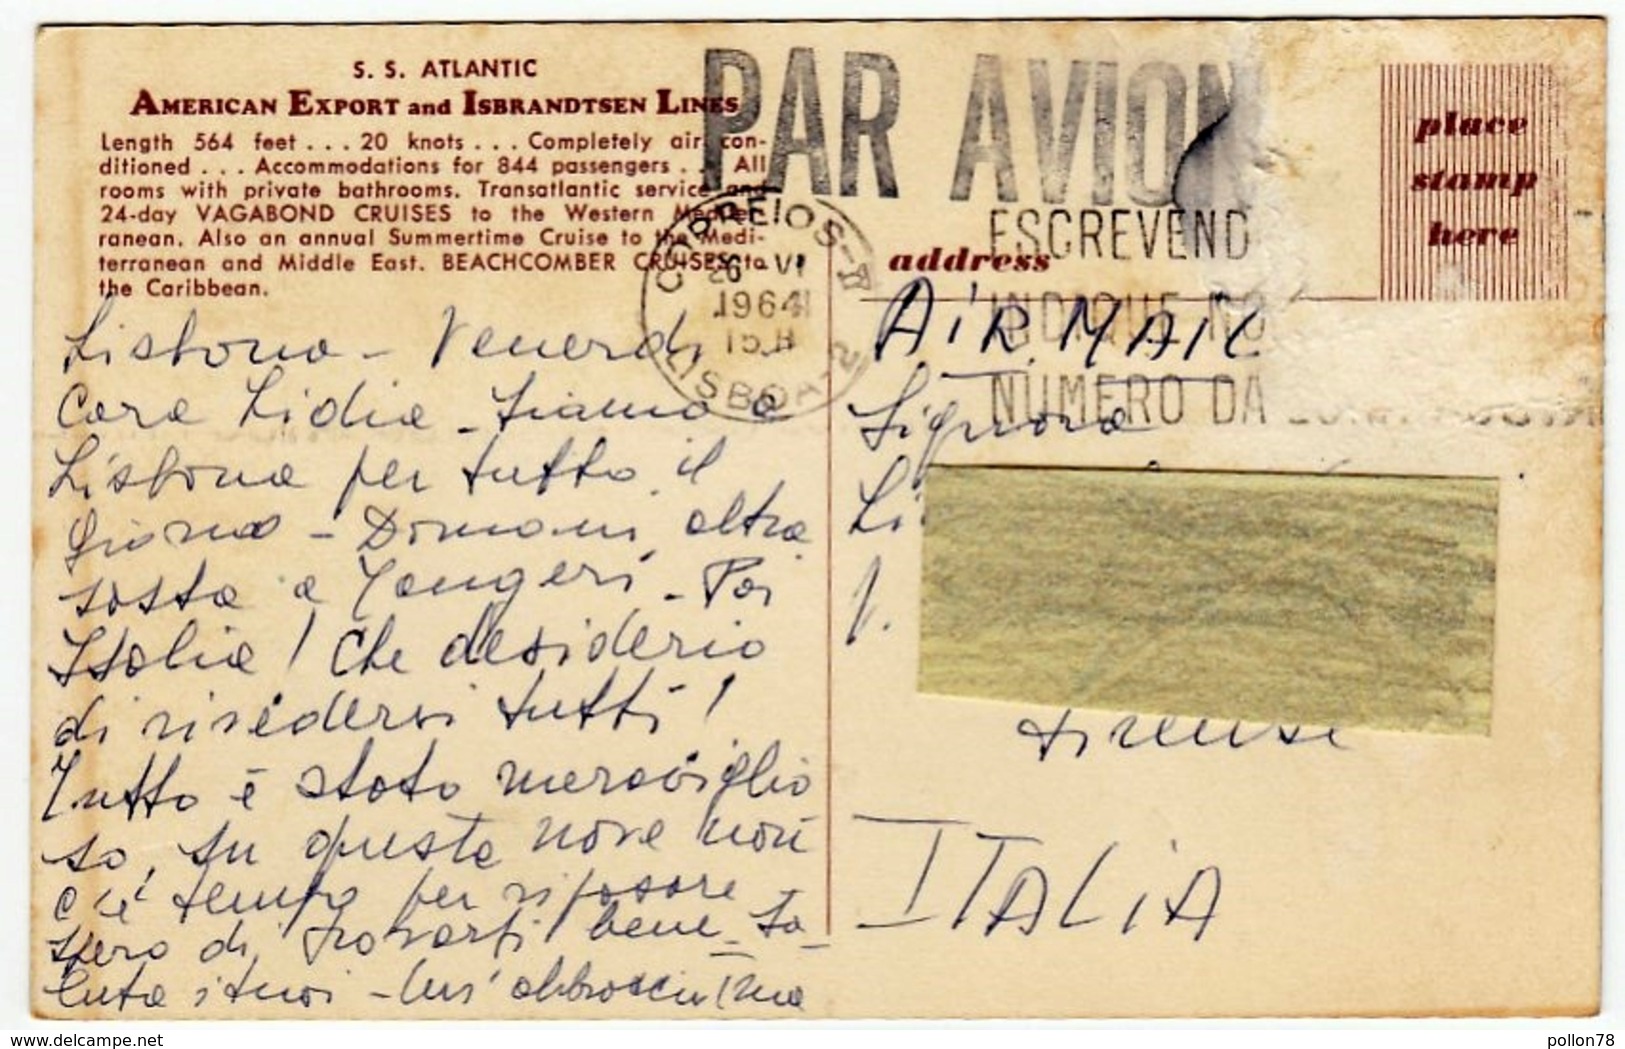 S. S. ATLANTIC
AMERICAN EXPORT and ISBRANDTSEN LINES
Length 564 feet . . . 20 knots . . . Completely air con-
ditioned . . . Accommodations for 844 passengers . . . All
rooms with private bathrooms. Transatlantic service and
24-day VAGABOND CRUISES to the Western Mediter-
ranean. Also an annual Summertime Cruise to the Medi-
terranean and Middle East. BEACHCOMBER CRUISES to
the Caribbean.
Lisbona - Venerdì
Cara Lidia - Siamo a
Lisbona per tutto il
giorno - Domani, altra
sosta a Tangeri - Poi
Italia! Che desiderio
di rivedervi tutti!
Tutto è stato meraviglio
so, su questa nave non
c'è tempo per riposare
spero di trovarti bene - Sa-
luta i tuoi - Un abbraccio
PAR AVION
CORREIOS
26 VI
1964
15 H
LISBOA-2
ESCREVENDO
INDIQUE NO
NÚMERO DA
place
stamp
here
address
AIR MAIL
Signora
Li
V.
Firenze
ITALIA
www.delcampe.net
pollon78